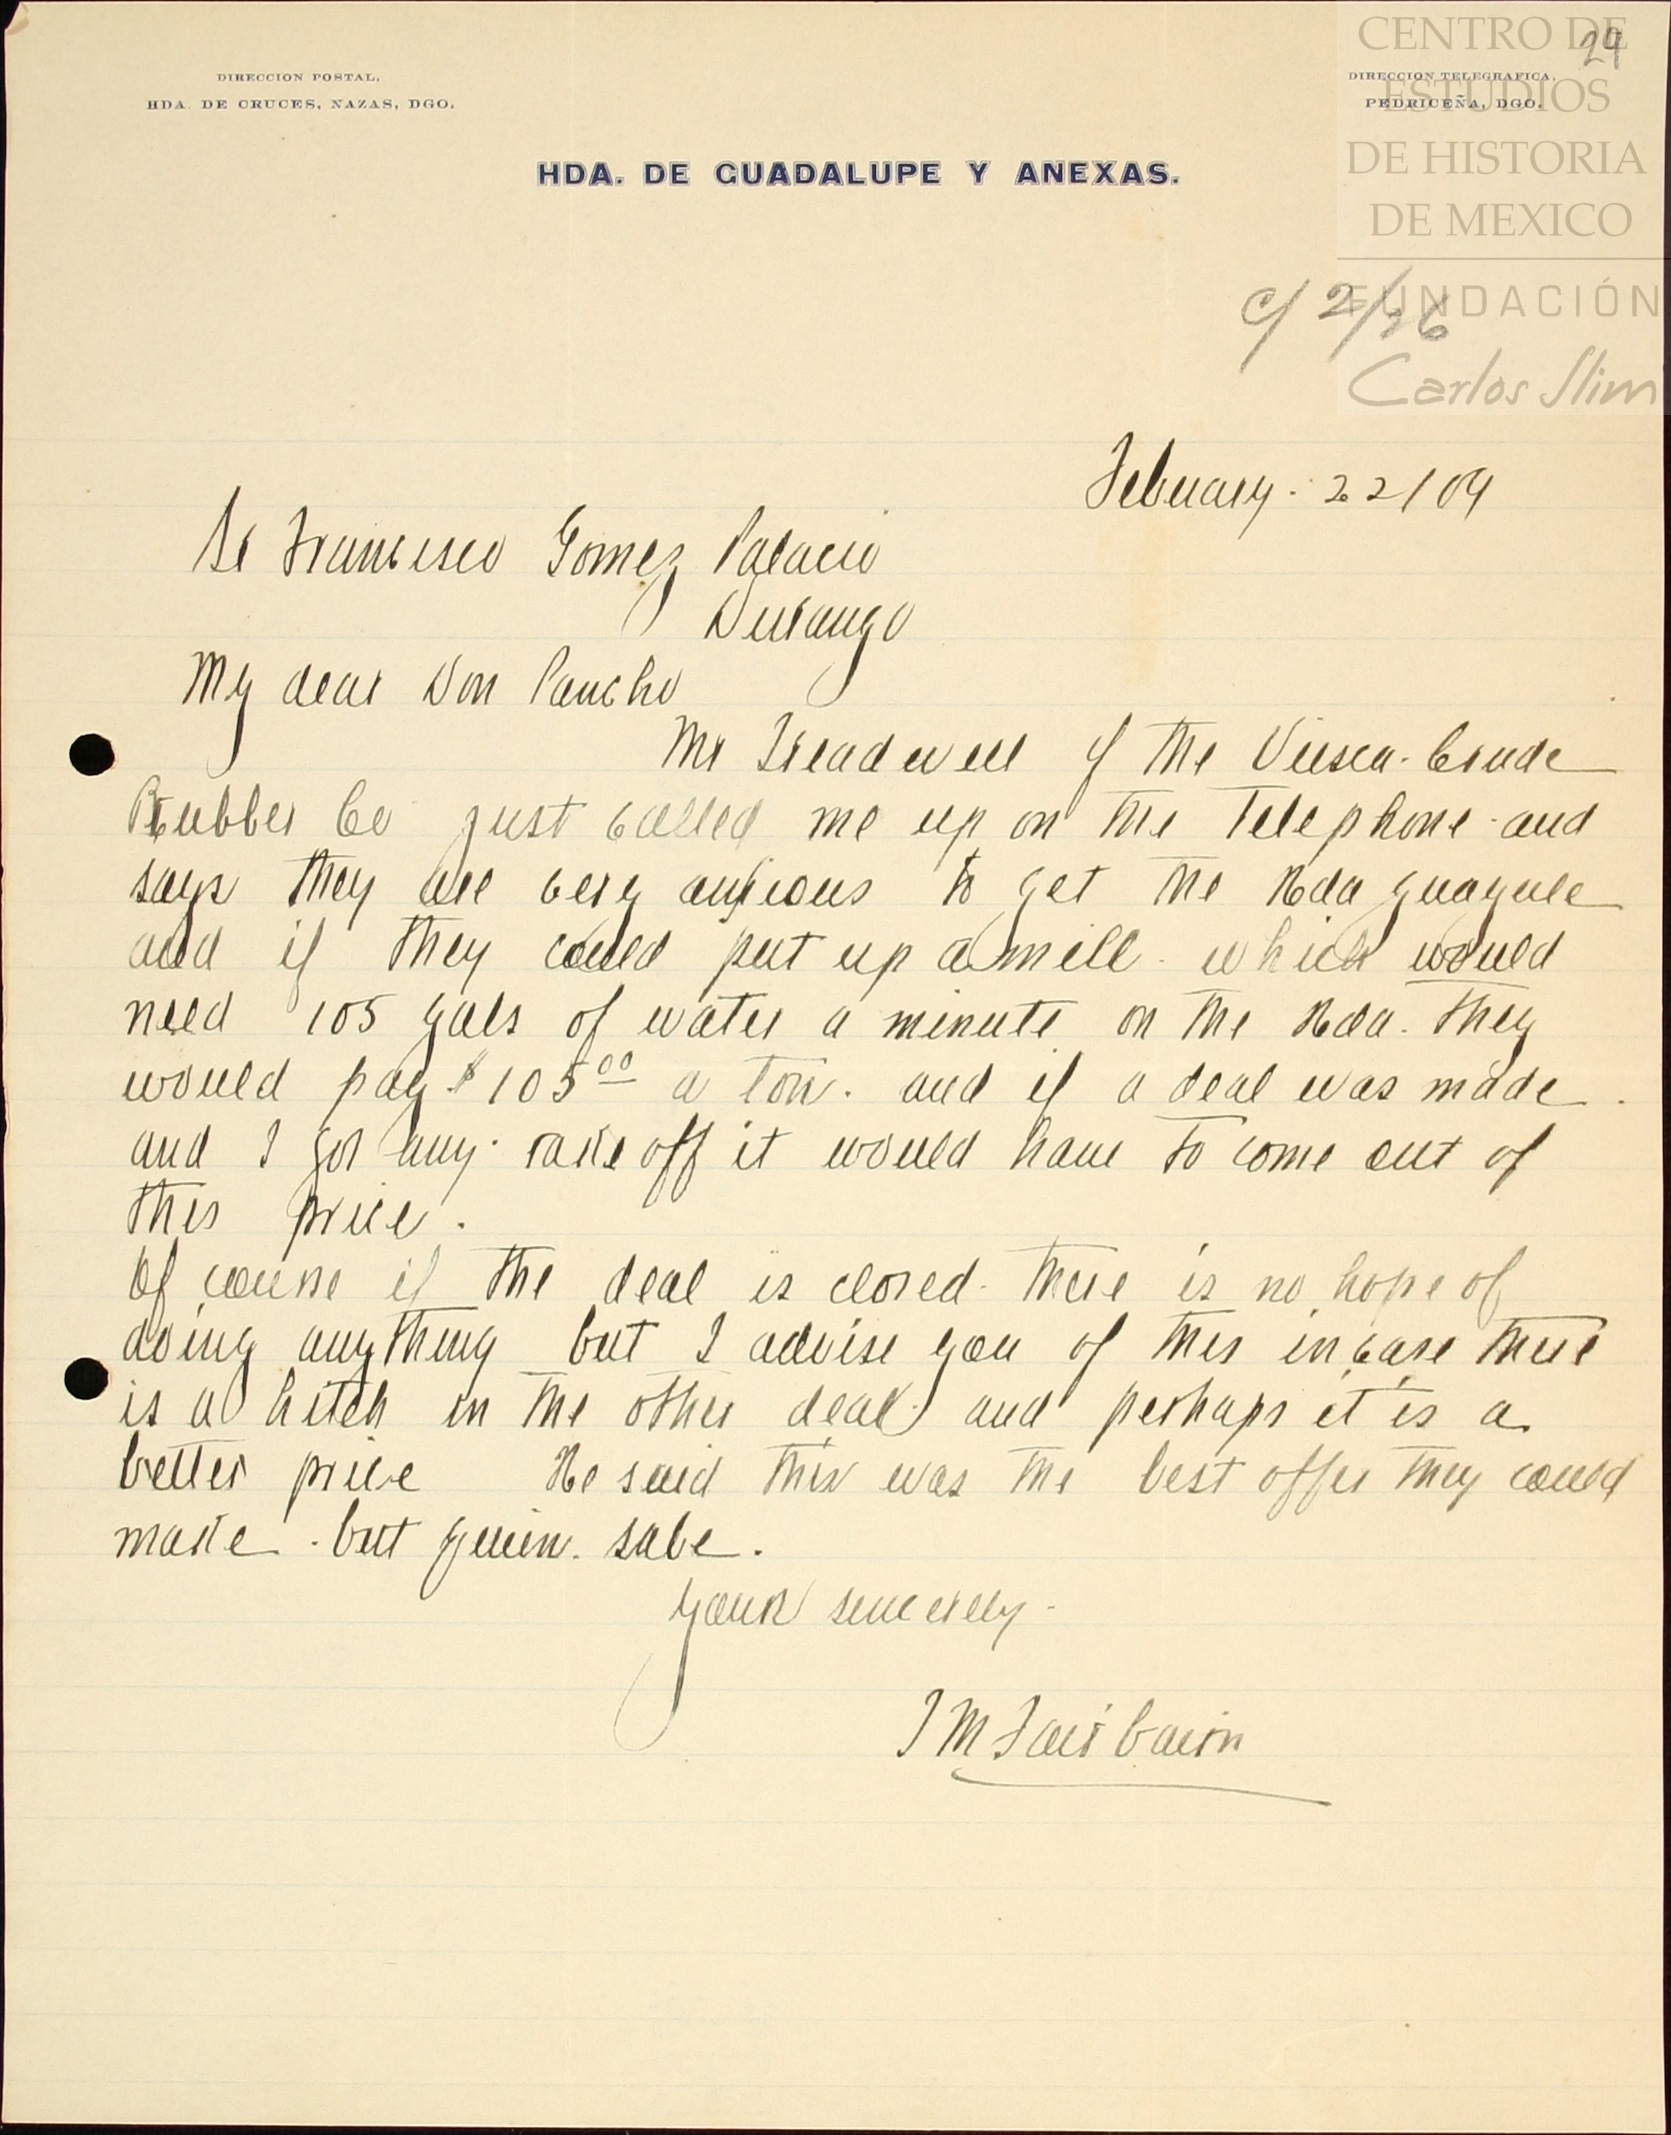 CENTRO DE
ESTUDIOS
DE HISTORIA
DE MEXICO
FUNDACIÓN
Carlos Slim
29
DIRECCION POSTAL,
HDA. DE CRUCES, NAZAS, DGO.
DIRECCION TELEGRAFICA,
PEDRICEÑA, DGO.
HDA. DE GUADALUPE Y ANEXAS.
c/ 2/26
February. 22/09
Sr Francisco Gomez Palacio
Durango
My dear Don Pancho
Mr Treadwell of the Viesca. Crude
Rubber Co just called me up on the Telephone and
says they are very anxious to get the Hda guayule
and if they could put up a mill. which would
need 105 gals of water a minute on the Hda. they
would pay $105 00 a ton. and if a deal was made.
and I got any rake off it would have to come out of
this price.
Of course if the deal is closed. there is no hope of
doing anything but I advise you of this in case there
is a hitch in the other deal and perhaps it is a
better price He said this was the best offer they could
make. but quien. sabe.
Yours sincerely.
J M Fairbairn